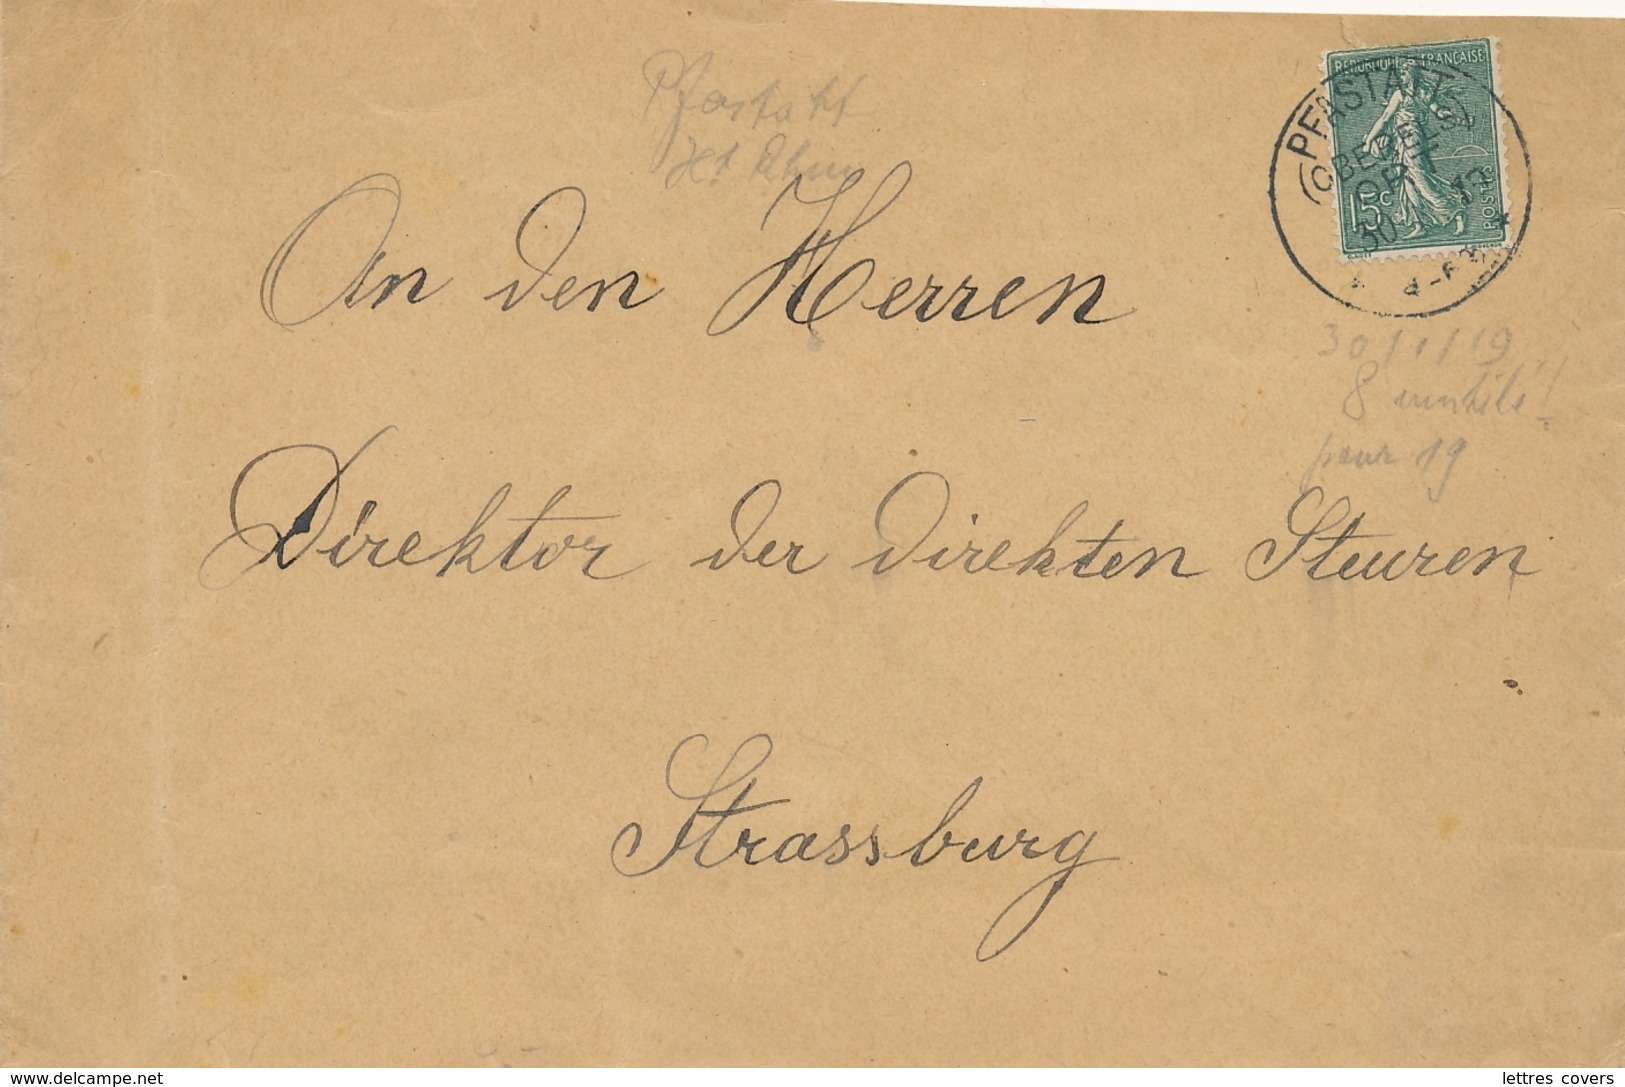 REPUBLIQUE FRANÇAISE
15c
POSTES
PFASTATT
(OBERELS)
ORT
30
Pfastatt
Ht Rhin
An den Herren
30/1/19
8
pour 19
Direktor der direkten Steuren
Strassburg
www.delcampe.net
lettres covers